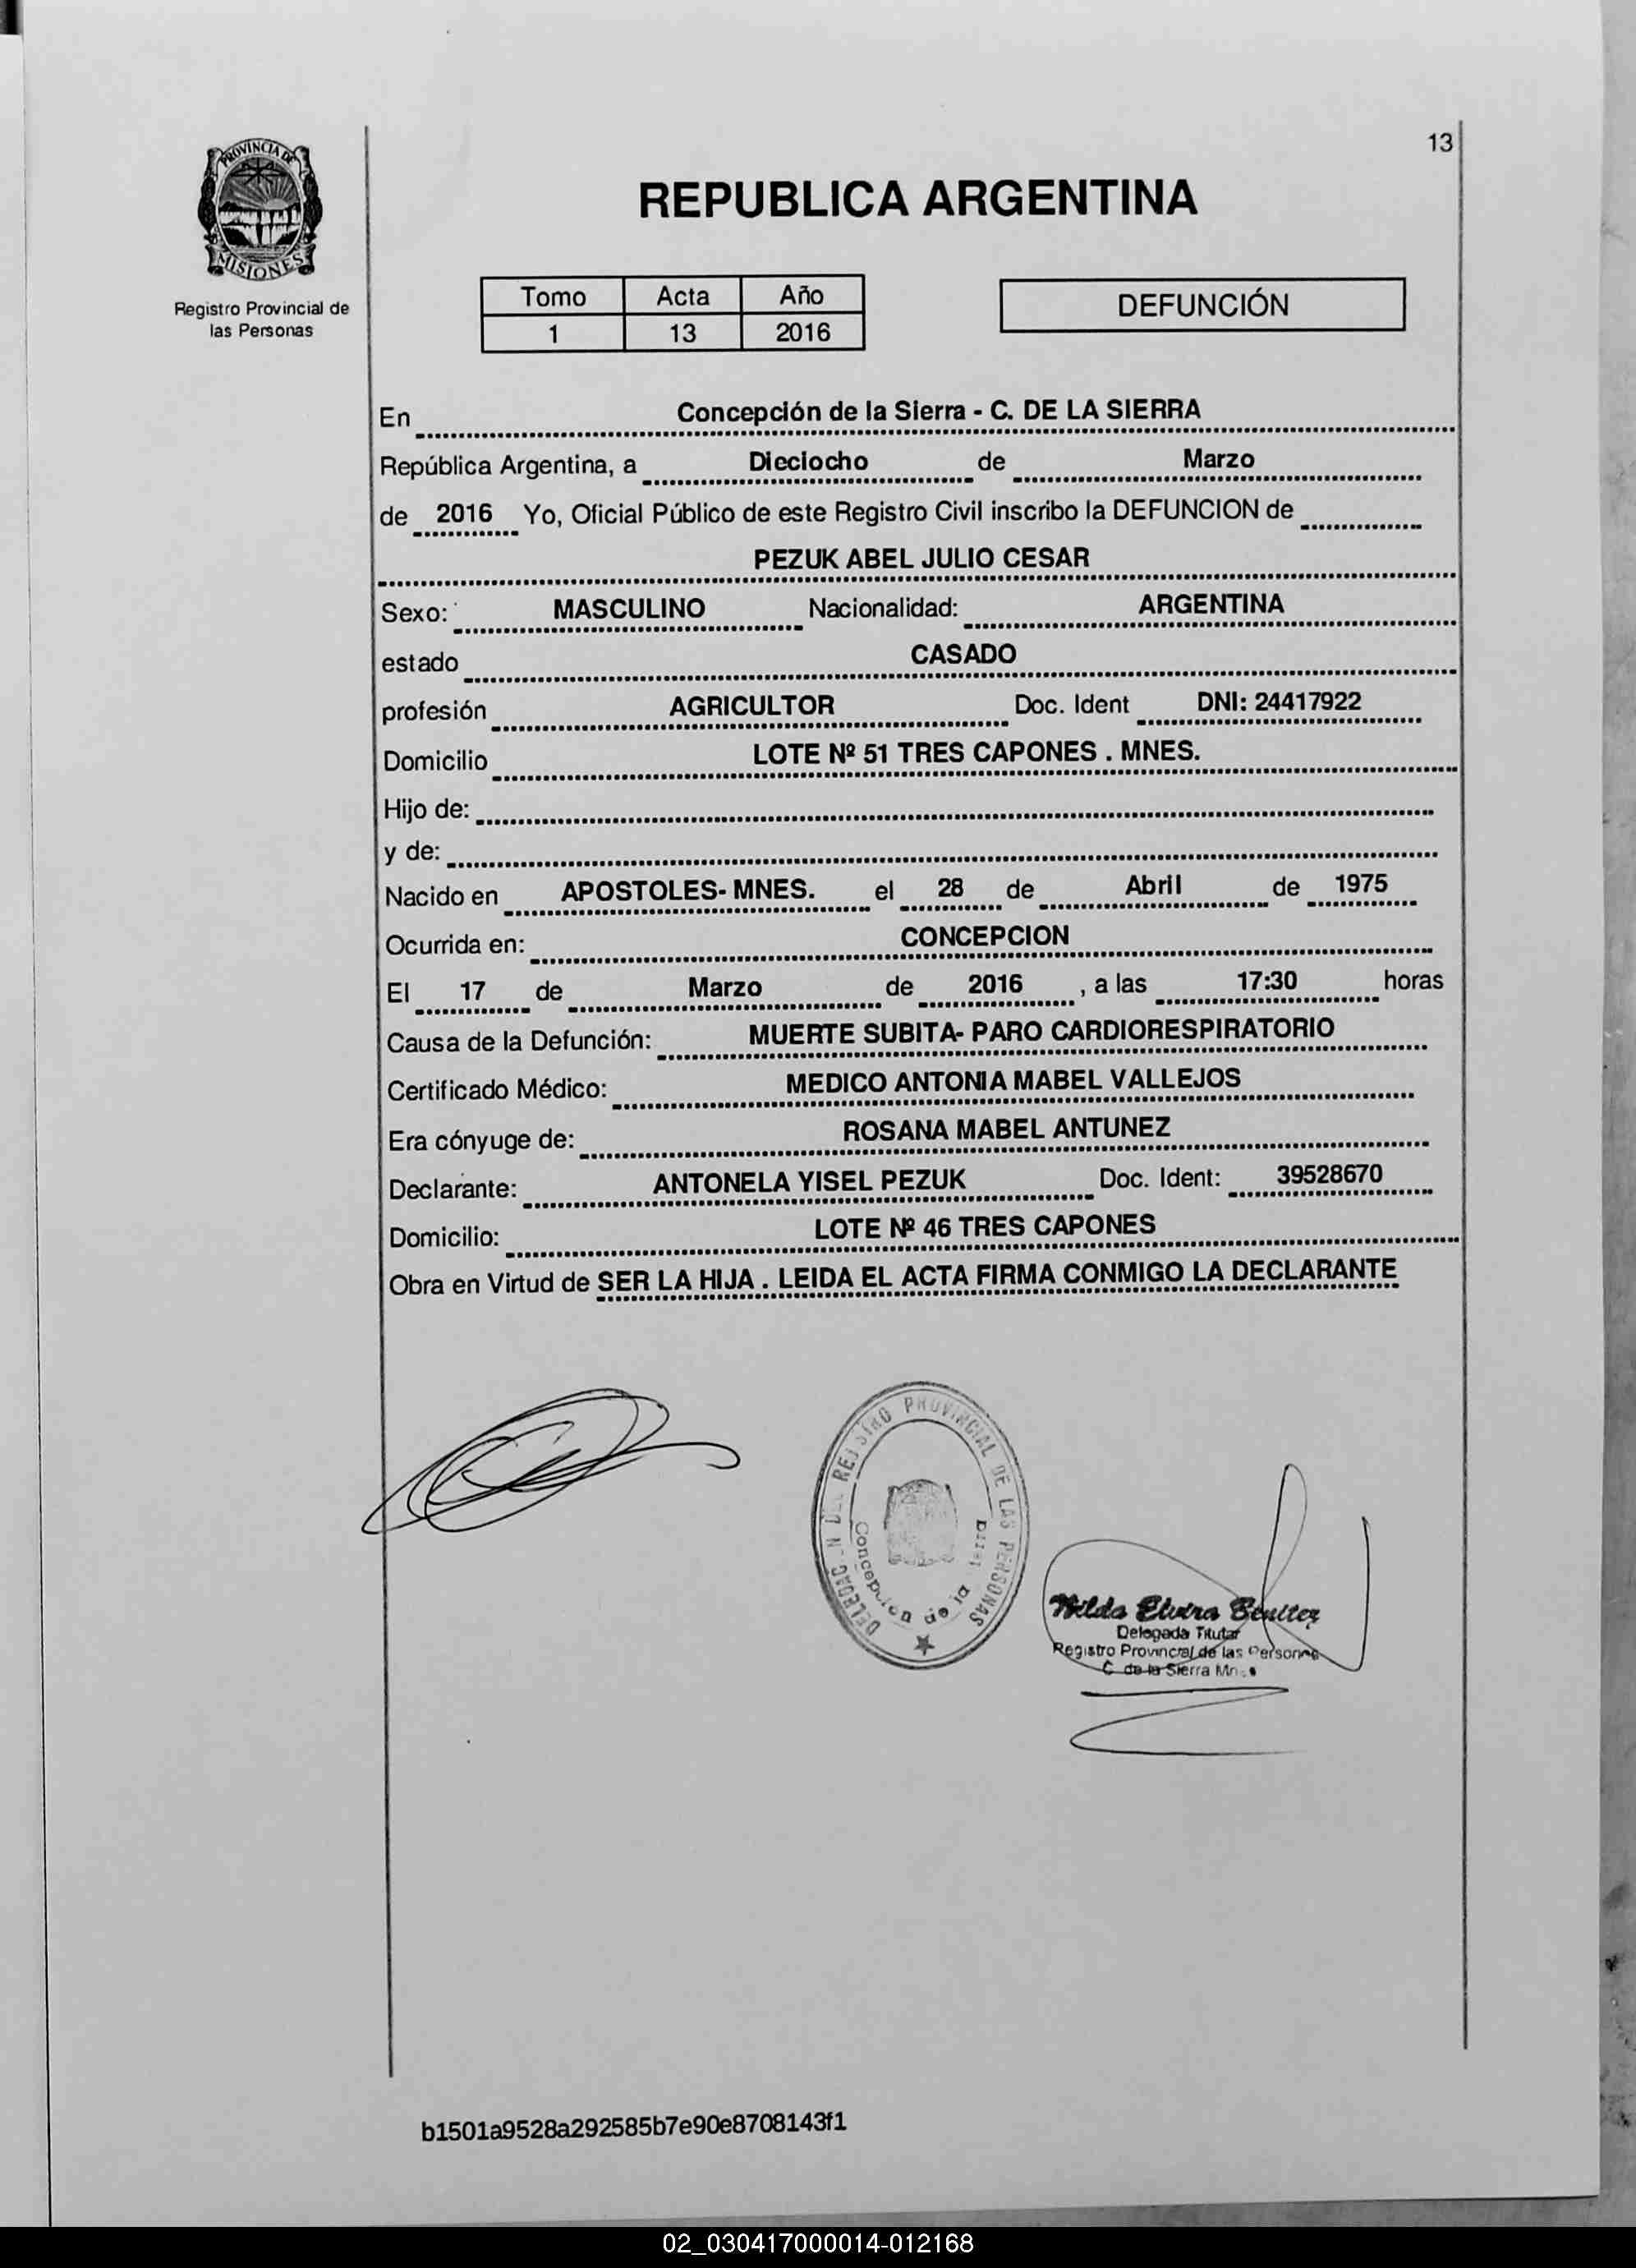 13
PROVINCIA DE
MISIONES
Registro Provincial de
las Personas
REPUBLICA ARGENTINA
Tomo Acta Año
1 13 2016
DEFUNCIÓN
En Concepción de la Sierra - C. DE LA SIERRA
República Argentina, a Dieciocho de Marzo
de 2016 Yo, Oficial Público de este Registro Civil inscribo la DEFUNCION de
PEZUK ABEL JULIO CESAR
Sexo: MASCULINO Nacionalidad: ARGENTINA
estado CASADO
profesión AGRICULTOR Doc. Ident DNI: 24417922
Domicilio LOTE Nº 51 TRES CAPONES . MNES.
Hijo de:
y de:
Nacido en APOSTOLES- MNES. el 28 de Abril de 1975
Ocurrida en: CONCEPCION
El 17 de Marzo de 2016 , a las 17:30 horas
Causa de la Defunción: MUERTE SUBITA- PARO CARDIORESPIRATORIO
Certificado Médico: MEDICO ANTONIA MABEL VALLEJOS
Era cónyuge de: ROSANA MABEL ANTUNEZ
Declarante: ANTONELA YISEL PEZUK Doc. Ident: 39528670
Domicilio: LOTE Nº 46 TRES CAPONES
Obra en Virtud de SER LA HIJA . LEIDA EL ACTA FIRMA CONMIGO LA DECLARANTE
PROVINCIAL DE LAS PERSONAS
Concepción de la
Hilda Elvira Benitez
Delegada Titular
Registro Provincial de las Personas
C. de la Sierra
b1501a9528a292585b7e90e8708143f1
02_030417000014-012168